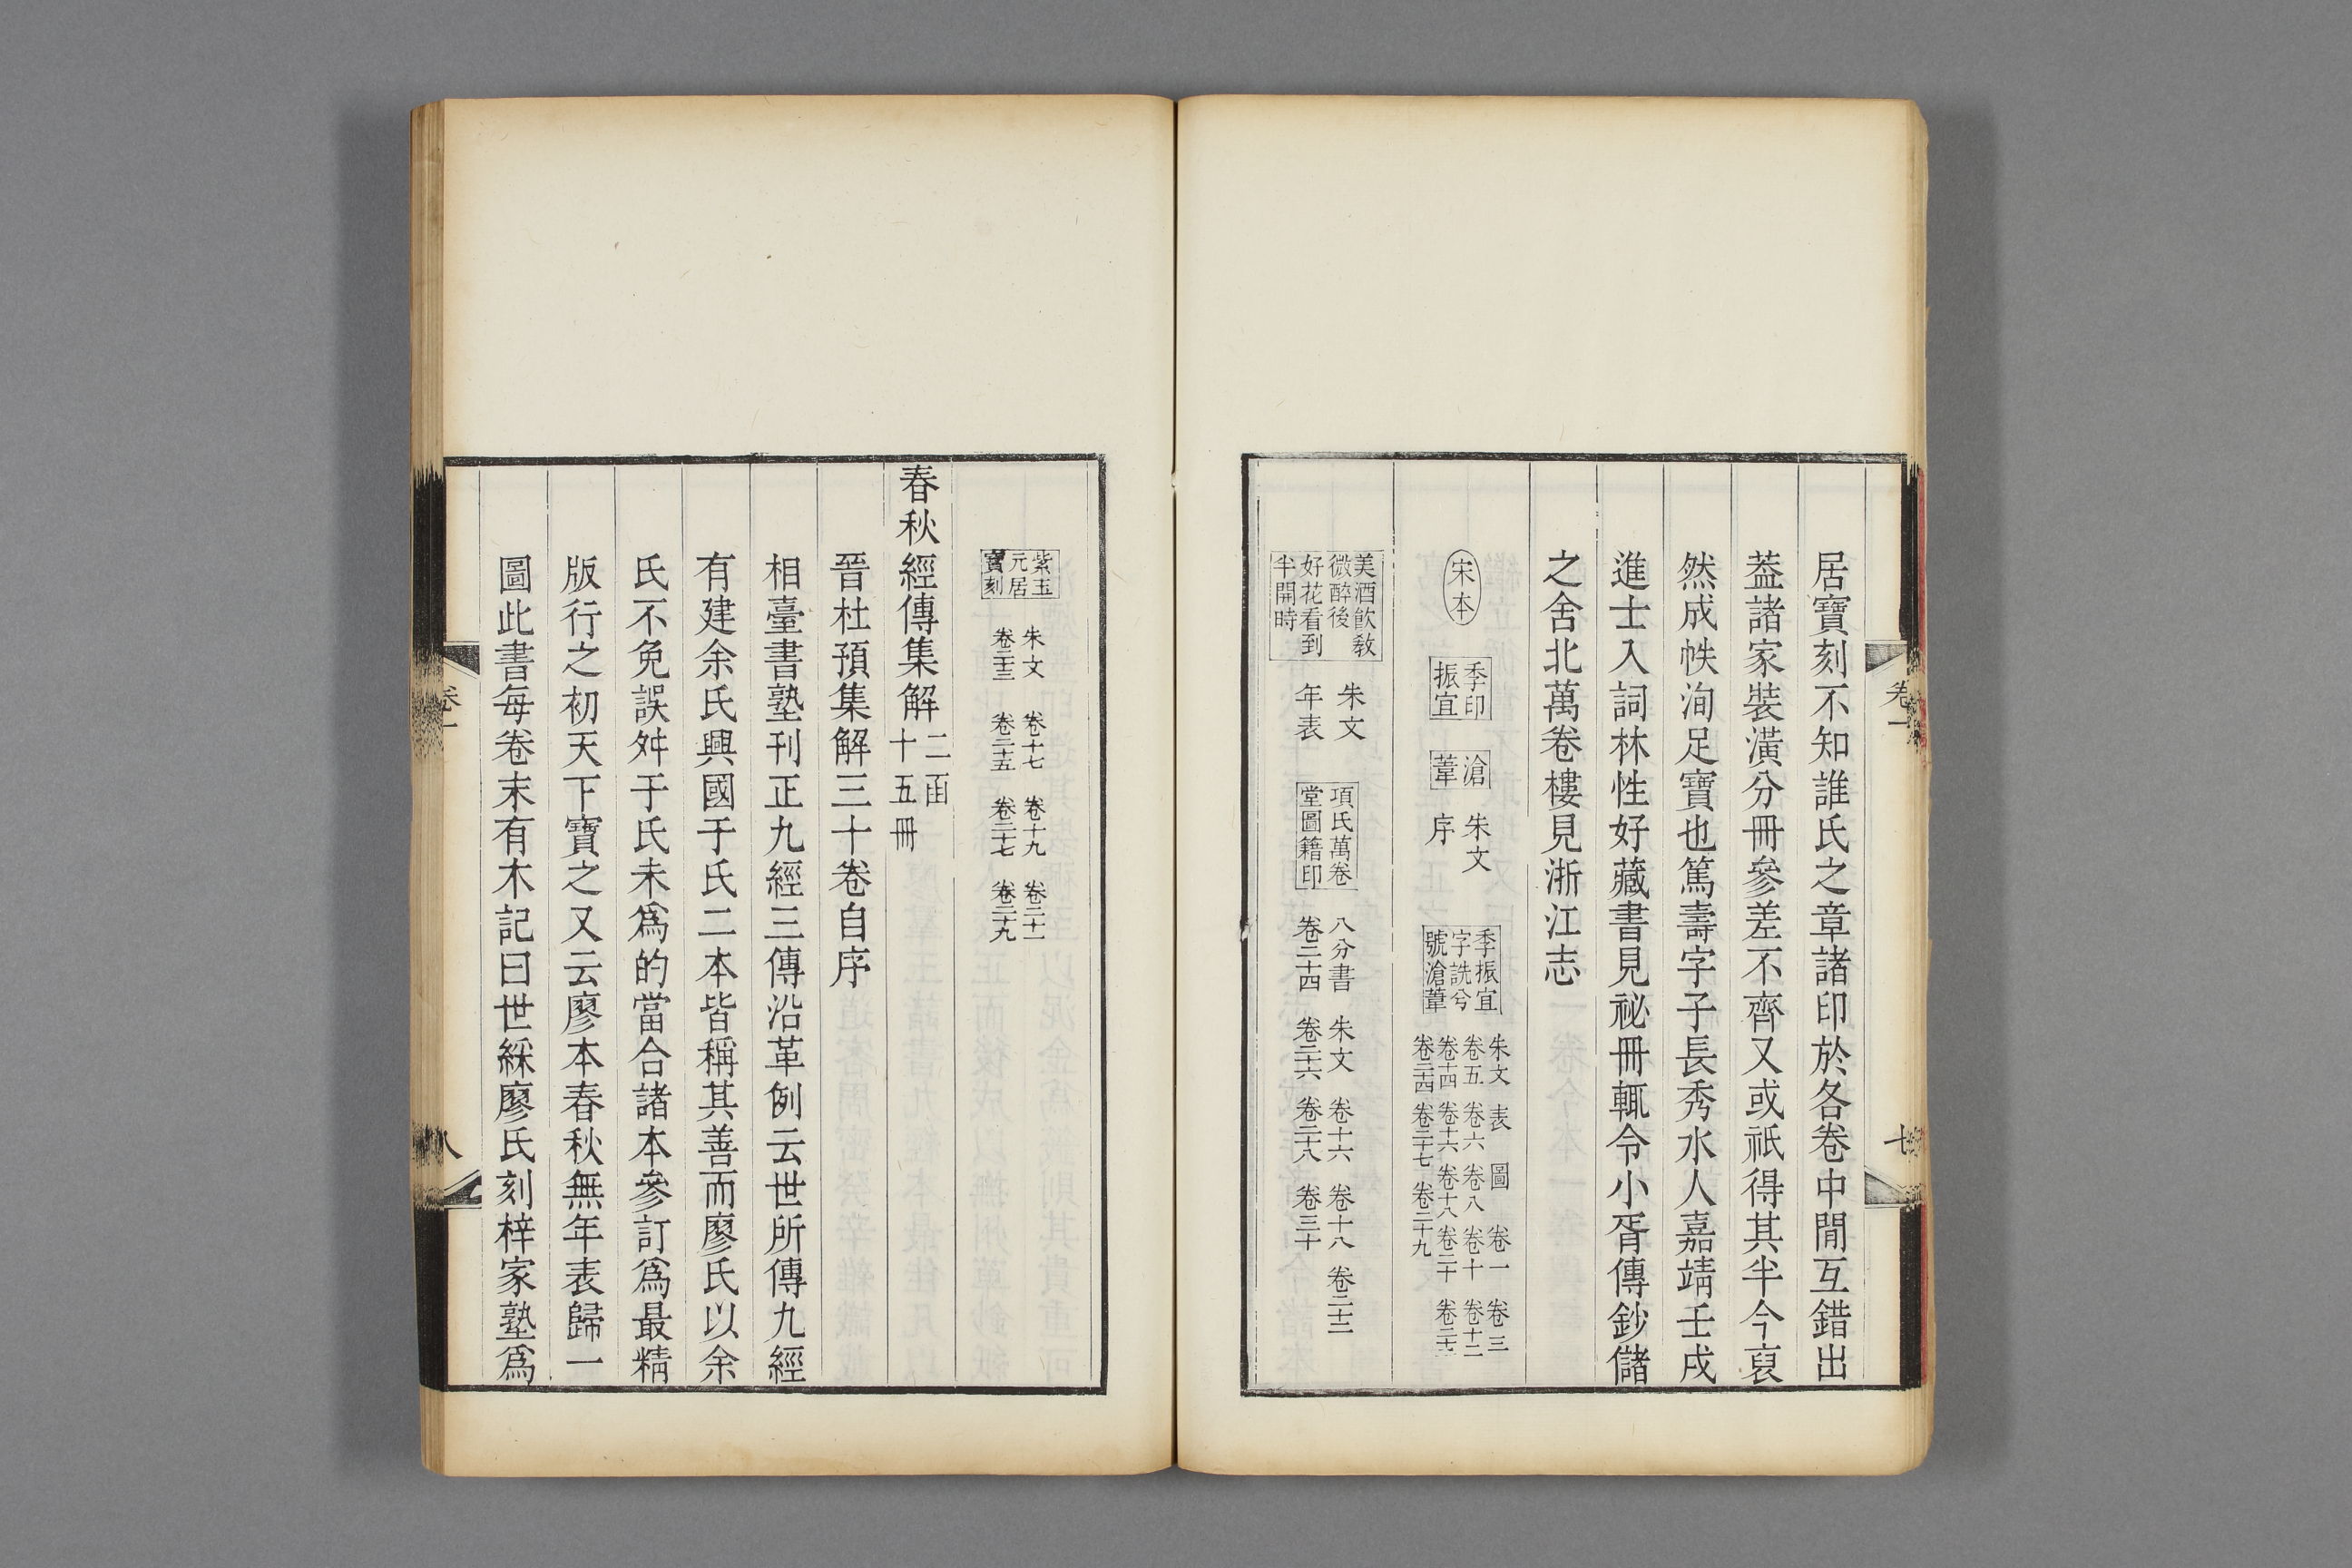 居寶刻不知誰氏之章諸印於各卷中閒互錯出
葢諸家裝潢分冊參差不齊又或祇得其半今裒
然成帙洵足寶也篤壽字子長秀水人嘉靖壬戌
進士入詞林性好藏書見祕冊輒令小胥傳鈔儲
之舍北萬卷樓見浙江志
宋本
季印
振宜
滄
葦
朱文
序
季振宜
字詵兮
號滄葦
朱文 表 圖 卷一 卷三
卷五 卷六 卷八 卷十 卷十二
卷十四 卷十六 卷十八 卷二十 卷二十二
卷二十四 卷二十七 卷二十九
美酒飮教
微醉後
好花看到
半開時
朱文
年表
項氏萬卷
堂圖籍印
八分書
卷二十四
朱文 卷十六 卷十八 卷二十二
卷二十六 卷二十八 卷三十
卷一
七
紫玉
元居
寶刻
朱文 卷十七 卷十九 卷二十一
卷二十三 卷二十五 卷二十七 卷二十九
春秋經傳集解
二函
十五冊
晉杜預集解三十卷自序
相臺書塾刊正九經三傳沿革例云世所傳九經
有建余氏興國于氏二本皆稱其善而廖氏以余
氏不免誤舛于氏未爲的當合諸本參訂爲最精
版行之初天下寶之又云廖本春秋無年表歸一
圖此書每卷末有木記曰世綵廖氏刻梓家塾爲
卷一
八